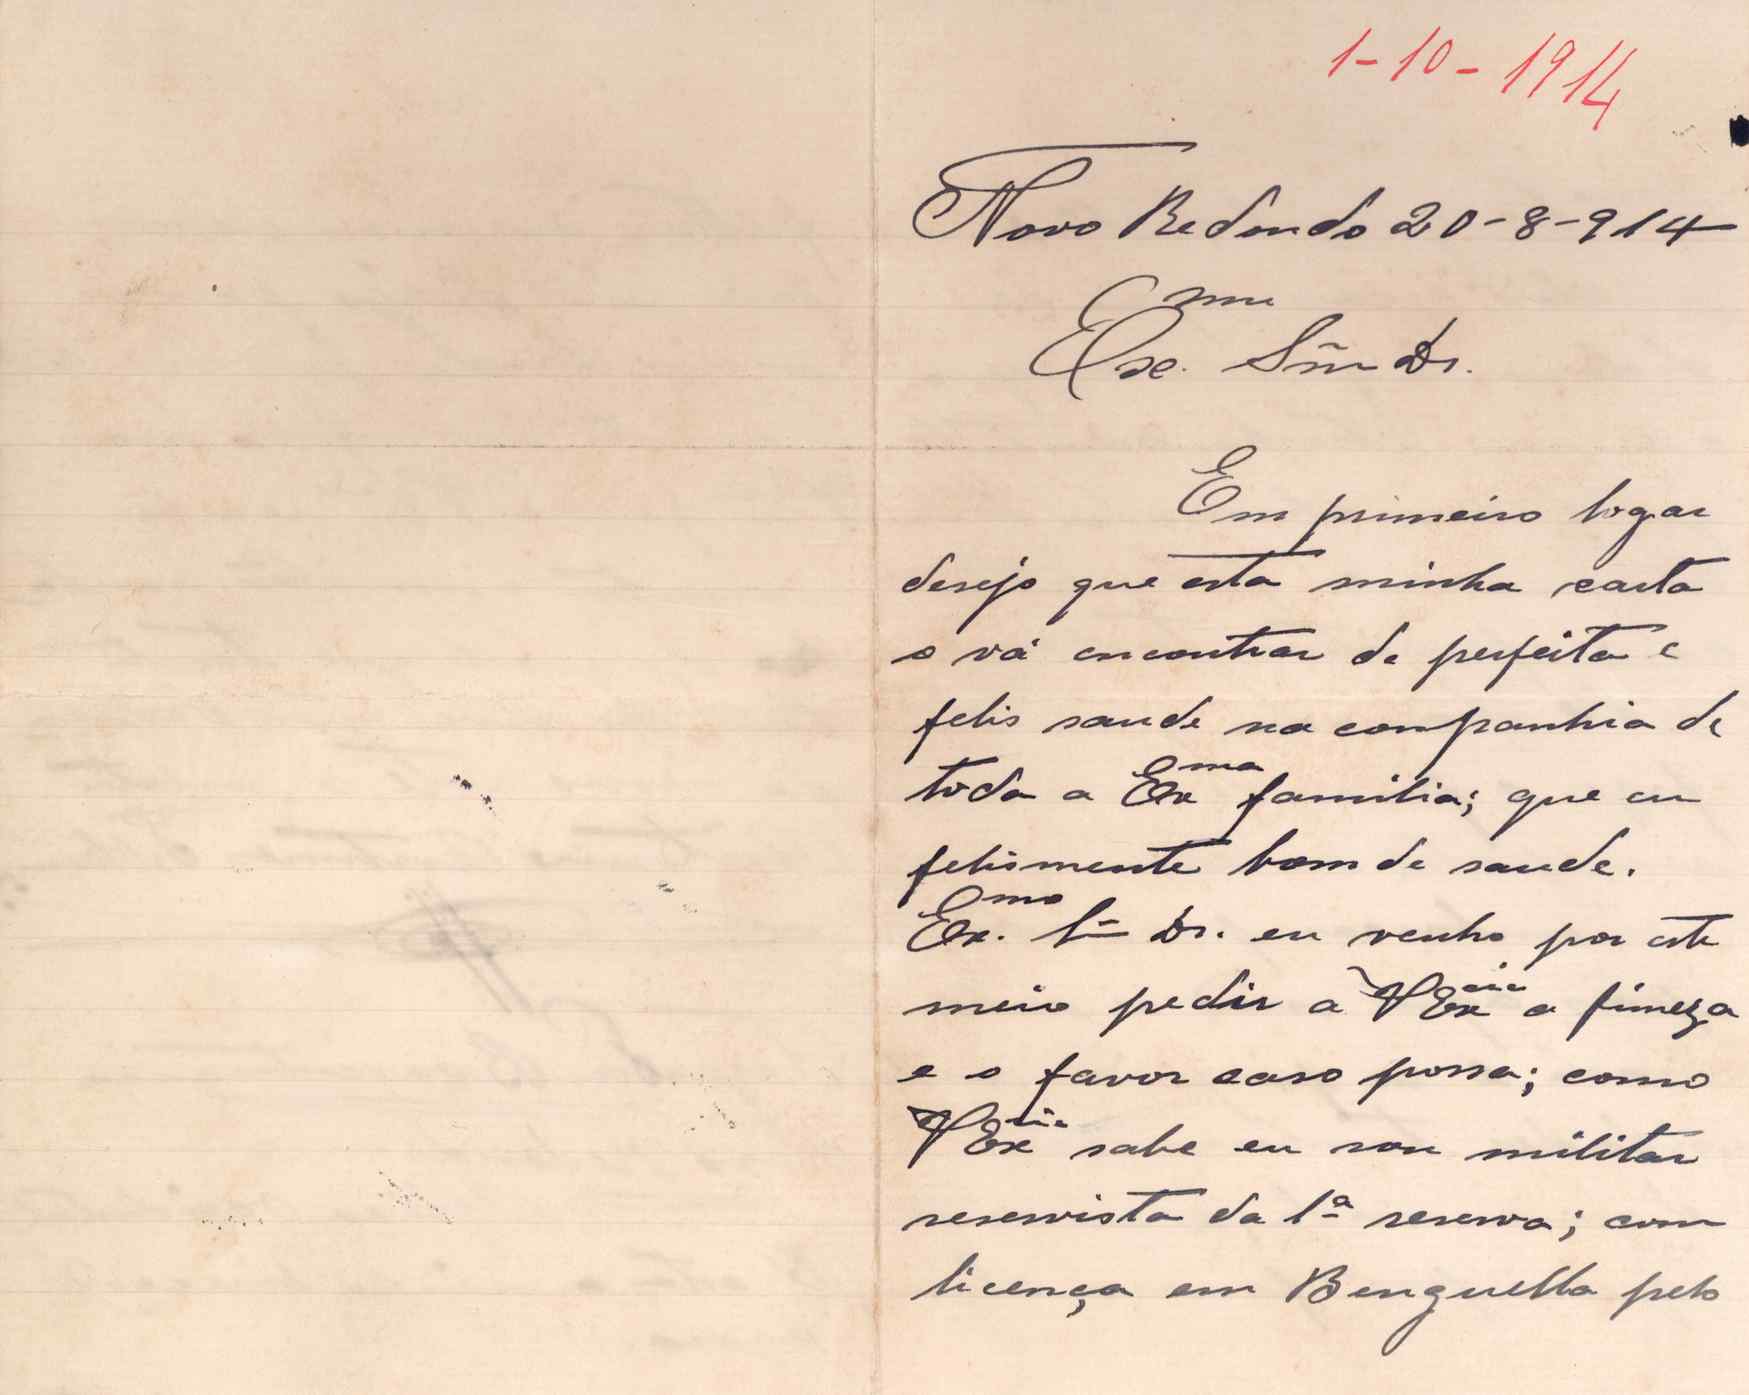 1-10-1914
Novo Redondo 20-8-914
Exmo. Snr Dr.
Em primeiro logar
desejo que esta minha carta
o vá encontrar de perfeita e
felis saude na companhia de
toda a Exma familia; que eu
felismente bom de saude.
Exmo. Sr Dr. eu venho por este
meio pedir a VExcia a fineza
e o favor caso possa; como
VExcia sabe eu sou militar
reservista da 1ª reserva; com
licença em Benguella pelo